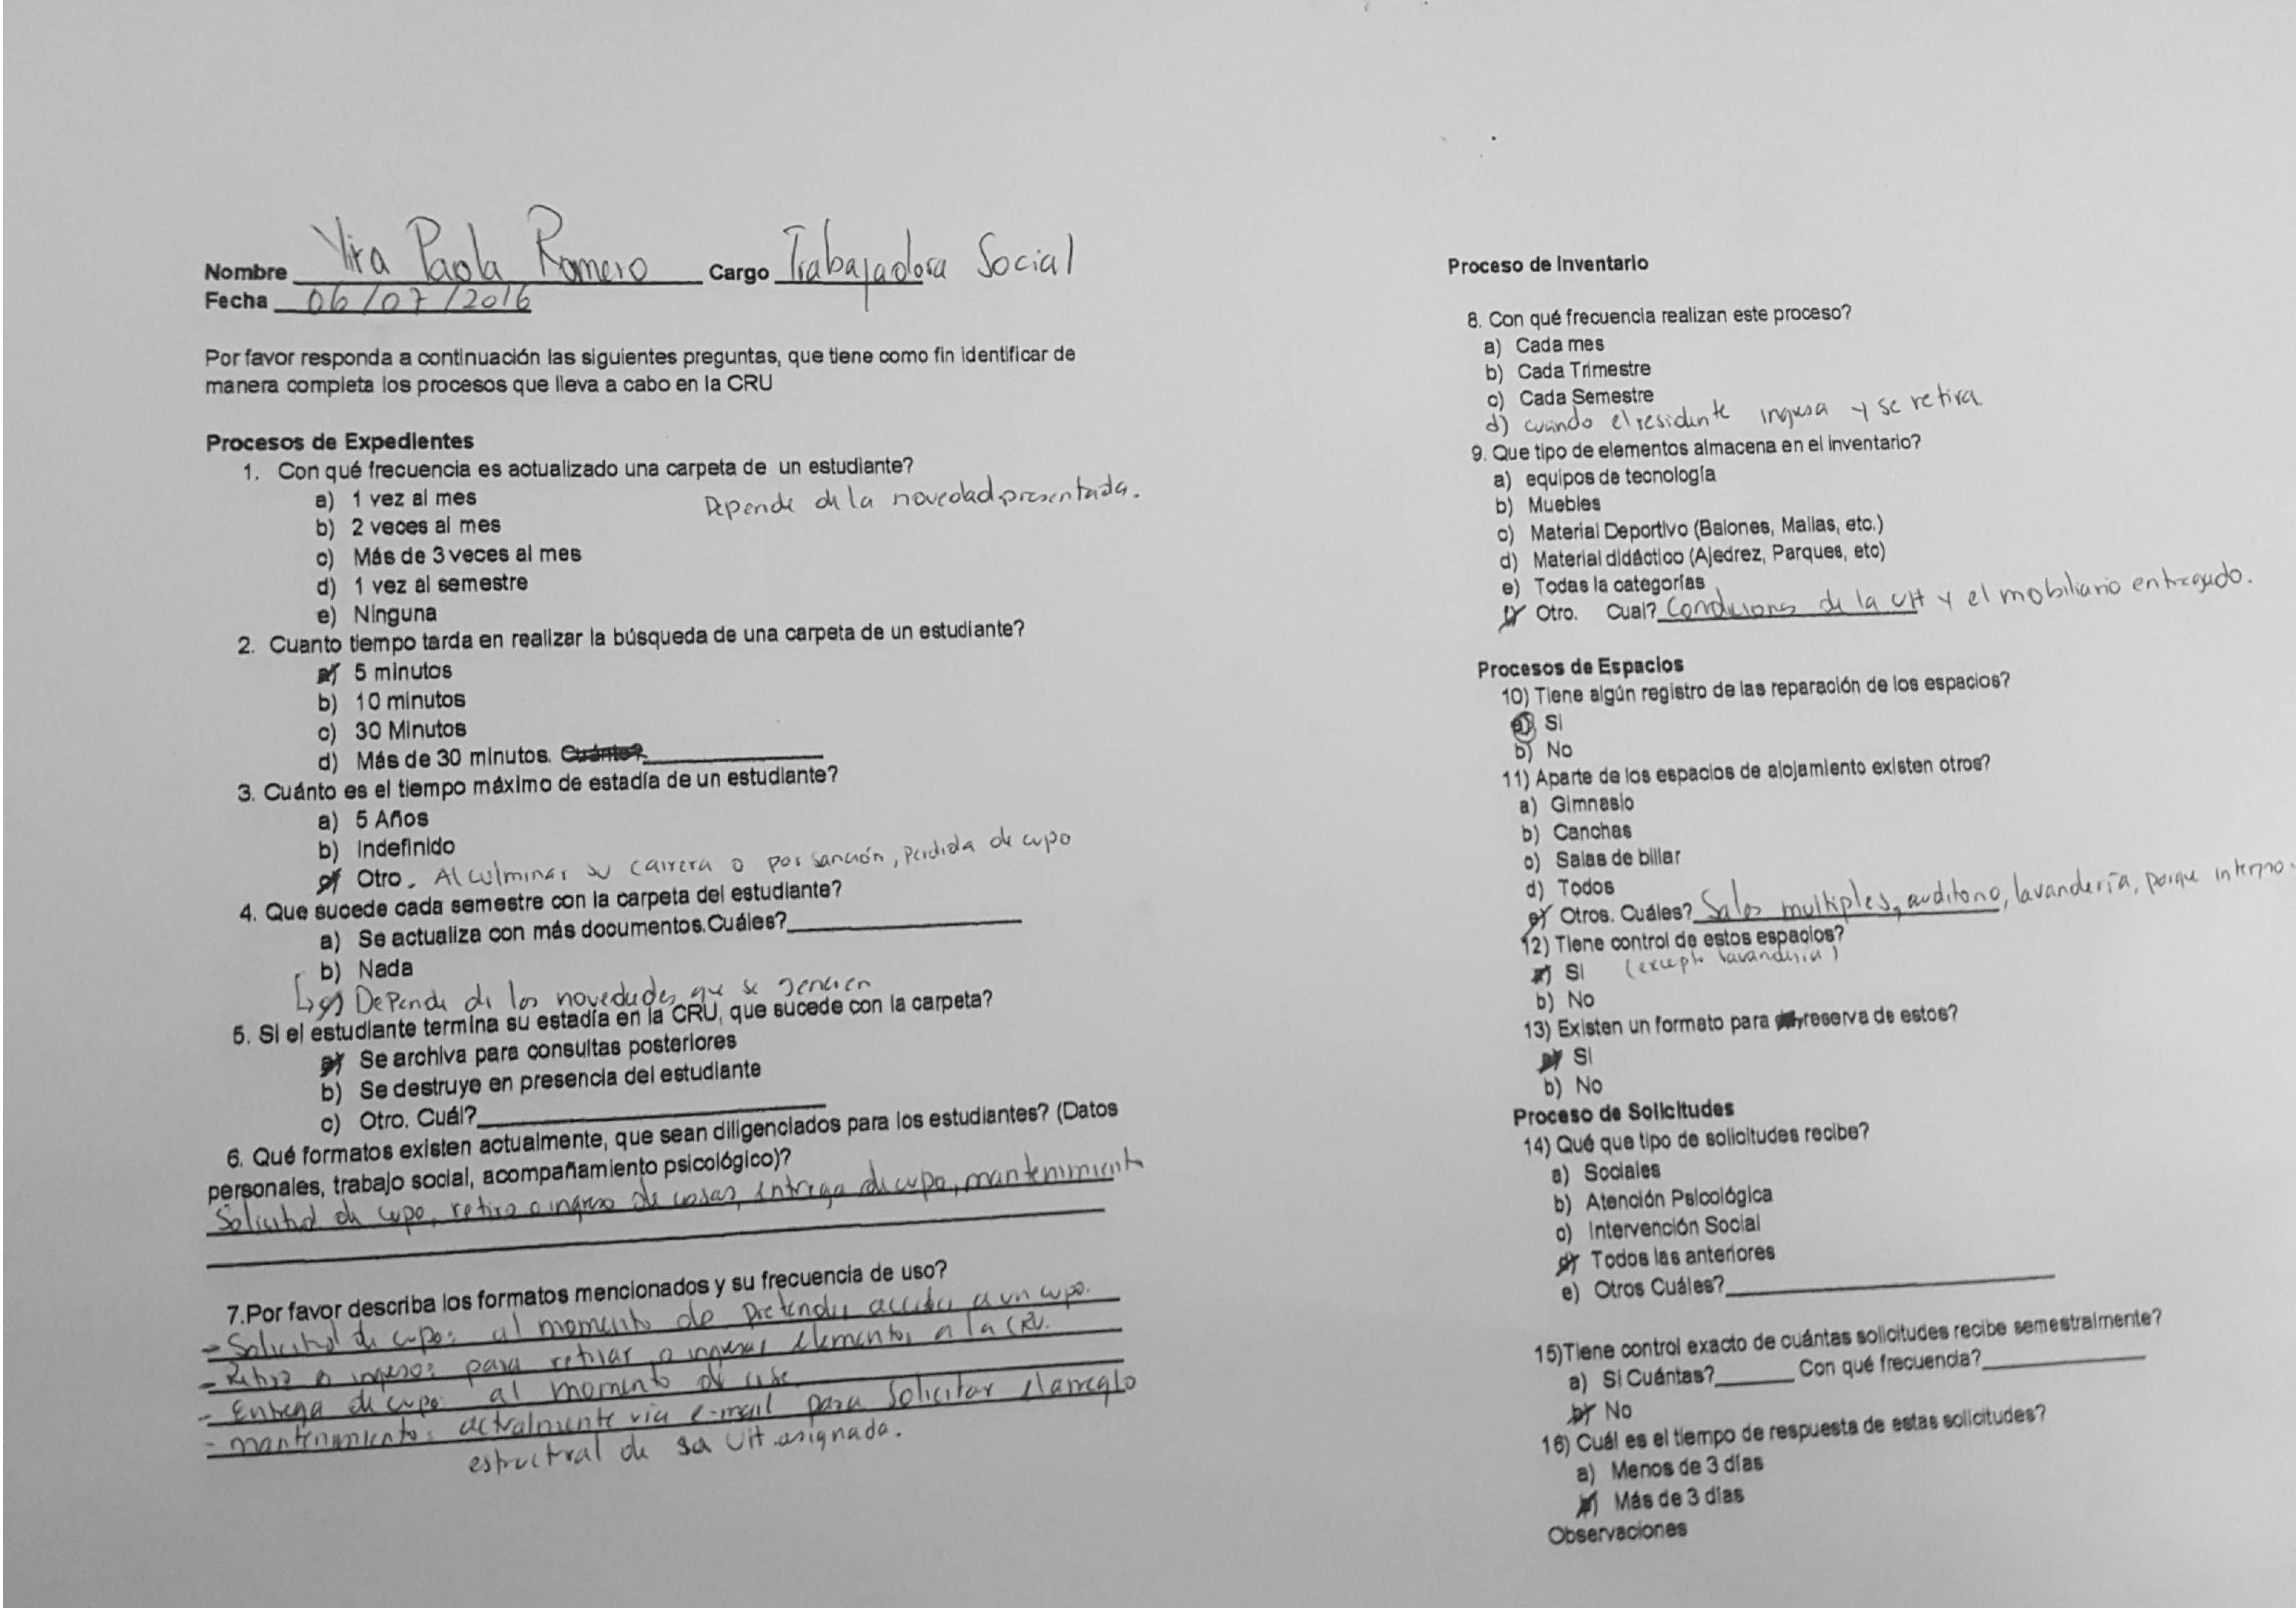 Nombre Yira Paola Romero Cargo Trabajadora Social
Fecha 06/07/2016
Por favor responda a continuación las siguientes preguntas, que tiene como fin identificar de
manera completa los procesos que lleva a cabo en la CRU
Procesos de Expedientes
1. Con qué frecuencia es actualizado una carpeta de un estudiante?
a) 1 vez al mes
Depende de la novedad presentada.
b) 2 veces al mes
c) Más de 3 veces al mes
d) 1 vez al semestre
e) Ninguna
2. Cuanto tiempo tarda en realizar la búsqueda de una carpeta de un estudiante?
a) 5 minutos
b) 10 minutos
c) 30 Minutos
d) Más de 30 minutos. Cuánto?
3. Cuánto es el tiempo máximo de estadía de un estudiante?
a) 5 Años
b) Indefinido
c) Otro. Al culminar su carrera o por sanción, perdida de cupo
4. Que sucede cada semestre con la carpeta del estudiante?
a) Se actualiza con más documentos.Cuáles?
b) Nada
c) Depende de las novedades que se generen
5. Si el estudiante termina su estadía en la CRU, que sucede con la carpeta?
a) Se archiva para consultas posteriores
b) Se destruye en presencia del estudiante
c) Otro. Cuál?
6. Qué formatos existen actualmente, que sean diligenciados para los estudiantes? (Datos
personales, trabajo social, acompañamiento psicológico)?
Solicitud de cupo, retiro o ingreso de cosas, entrega de cupo, mantenimiento
7.Por favor describa los formatos mencionados y su frecuencia de uso?
- Solicitud de cupo: al momento de pretender acceder a un cupo.
- Retiro o ingreso: para retirar o ingresar elementos a la CRU.
- Entrega de cupo: al momento de irse
- mantenimiento: actualmente via e-mail para solicitar el arreglo
estructural de sa UH asignada.
Proceso de Inventario
8. Con qué frecuencia realizan este proceso?
a) Cada mes
b) Cada Trimestre
c) Cada Semestre
d) cuando el residente ingresa y se retira
9. Que tipo de elementos almacena en el inventario?
a) equipos de tecnología
b) Muebles
c) Material Deportivo (Balones, Mallas, etc.)
d) Material didáctico (Ajedrez, Parques, etc)
e) Todas la categorías
f) Otro. Cual? Condiciones de la UH y el mobiliario entregado.
Procesos de Espacios
10) Tiene algún registro de las reparación de los espacios?
a) Si
b) No
11) Aparte de los espacios de alojamiento existen otros?
a) Gimnasio
b) Canchas
c) Salas de billar
d) Todos
e) Otros. Cuáles? Salas multiples, auditorio, lavandería, parque interno.
12) Tiene control de estos espacios?
a) Si (excepto lavandería)
b) No
13) Existen un formato para reserva de estos?
a) Si
b) No
Proceso de Solicitudes
14) Qué que tipo de solicitudes recibe?
a) Sociales
b) Atención Psicológica
c) Intervención Social
d) Todos las anteriores
e) Otros Cuáles?
15)Tiene control exacto de cuántas solicitudes recibe semestralmente?
a) Si Cuántas? Con qué frecuencia?
b) No
16) Cuál es el tiempo de respuesta de estas solicitudes?
a) Menos de 3 días
b) Más de 3 días
Observaciones